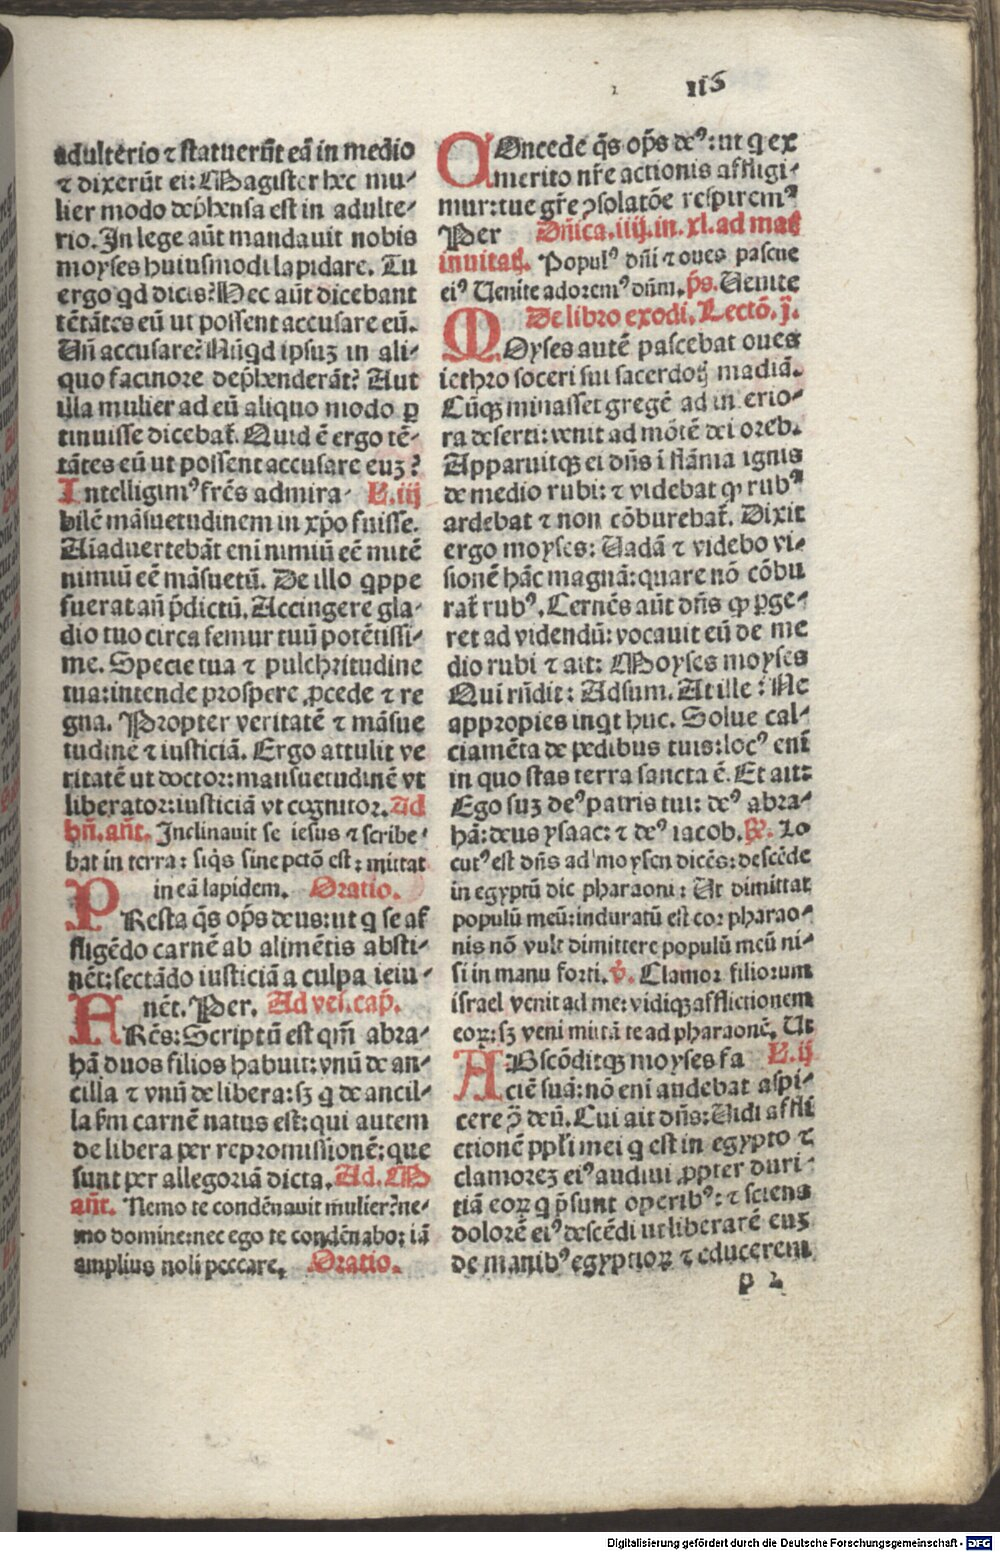 116
adulterio ⁊ statuerūt eā in medio
⁊ dixerūt ei: Magister hec mu⸗
lier modo dep̄hensa est in adulte⸗
rio. In lege aūt mandauit nobis
moyses huiusmodi lapidare. Tu
ergo qd dicis? Hec aūt dicebant
tētātes eū ut possent accusare eū.
Uñ accusare? Nūqd ipsuꝫ in ali⸗
quo facinore dep̄henderāt? Aut
illa mulier ad eū aliquo modo ꝑ
tinuisse dicebat̄. Quid ē ergo tē⸗
tātes eū ut possent accusare euꝫ?
Intelligimꝰ fr̄es admira⸗ L.iij
bilē māsuetudinem in xp̄o fuisse.
Aīaduertebāt eni nimiū eē mitē
nimiū eē māsuetū. De illo qppe
fuerat añ p̄dictū. Accingere gla⸗
dio tuo circa femur tuū potētissi⸗
me. Specie tua ⁊ pulchritudine
tua: intende prospere ꝓcede ⁊ re
gna. Propter veritatē ⁊ māsue
tudinē ⁊ iusticiā. Ergo attulit ve
ritatē ut doctor: mansuetudinē vt
liberator: iusticiā vt cognitor. Ad
bñ. añt. Inclinauit se iesus ⁊ scribe⸗
bat in terra: siq̄s sine pctō est: mittat
in eā lapidem. Oratio.
PResta q̄s op̄s deus: ut q se af
fligēdo carnē ab alimētis absti⸗
nēt: sectādo iusticiā a culpa ieiu⸗
nēt. Per. Ad ves. cap̄.
FRēs: Scriptū est qm̄ abra⸗
hā duos filios habuit: vnū de an⸗
cilla ⁊ vnū de libera: sꝫ q de ancil⸗
la s̄m carnē natus est: qui autem
de libera per repromissionē: que
sunt per allegoriā dicta. Ad. M
añt. Nemo te condēnauit mulier? ne⸗
mo domine: nec ego te condēnabo: iā
amplius noli peccare. Oratio.
COncede q̄s op̄s deꝰ: ut q ex
merito nr̄e actionis affligi⸗
mur: tue gr̄e ꝯsolatōe respiremꝰ
Per Dñica. iiij. in. xl. ad mat̄
inuitat̄. Populꝰ dñi ⁊ oues pascue
eiꝰ Uenite adoremꝰ dñm. p̄s. Uenite
De libro exodi. Lectō. j.
MOyses autē pascebat oues
iethro soceri sui sacerdotꝭ madiā.
Cūqꝫ minasset gregē ad interio⸗
ra deserti: venit ad mōtē dei oreb.
Apparuitqꝫ ei dñs ī flāma ignis
de medio rubi: ⁊ videbat ꝙ rubꝰ
ardebat ⁊ non cōburebat̄. Dixit
ergo moyses: Uadā ⁊ videbo vi⸗
sionē hāc magnā: quare nō cōbu
rat̄ rubꝰ. Cernēs aūt dñs ꝙ ꝑge⸗
ret ad videndū: vocauit eū de me
dio rubi ⁊ ait: Moyses moyses
Qui rñdit: Adsum. At ille: Ne
appropies inqt huc. Solue cal⸗
ciamēta de pedibus tuis: locꝰ eni
in quo stas terra sancta ē. Et ait:
Ego suꝫ deꝰ patris tui: deꝰ abra⸗
hā: deus ysaac: ⁊ deꝰ iacob. ℟. Lo
cutꝰ est dñs ad moysen dicēs: descēde
in egyptū dic pharaoni: Ut dimittat
populū meū: induratū est cor pharao⸗
nis nō vult dimittere populū meū ni⸗
si in manu forti. ℣. Clamor filiorum
israel venit ad me: vidiqꝫ afflictionem
eoꝝ: sꝫ veni mittā te ad pharaonē. Ut
ABscōditqꝫ moyses fa L.ij
ciē suā: nō eni audebat aspi⸗
cere ꝯ̄ deū. Cui ait dñs: Uidi affli
ctionē pp̄li mei q est in egypto ⁊
clamoreꝫ eiꝰ audiui ꝓpter duri⸗
tiā eoꝝ q p̄sunt operibꝰ: ⁊ sciens
dolorē eiꝰ descēdi ut liberarē euꝫ
de manibꝰ egyptioꝝ ⁊ educerem
p 2
Digitalisierung gefördert durch die Deutsche Forschungsgemeinschaft - DFG